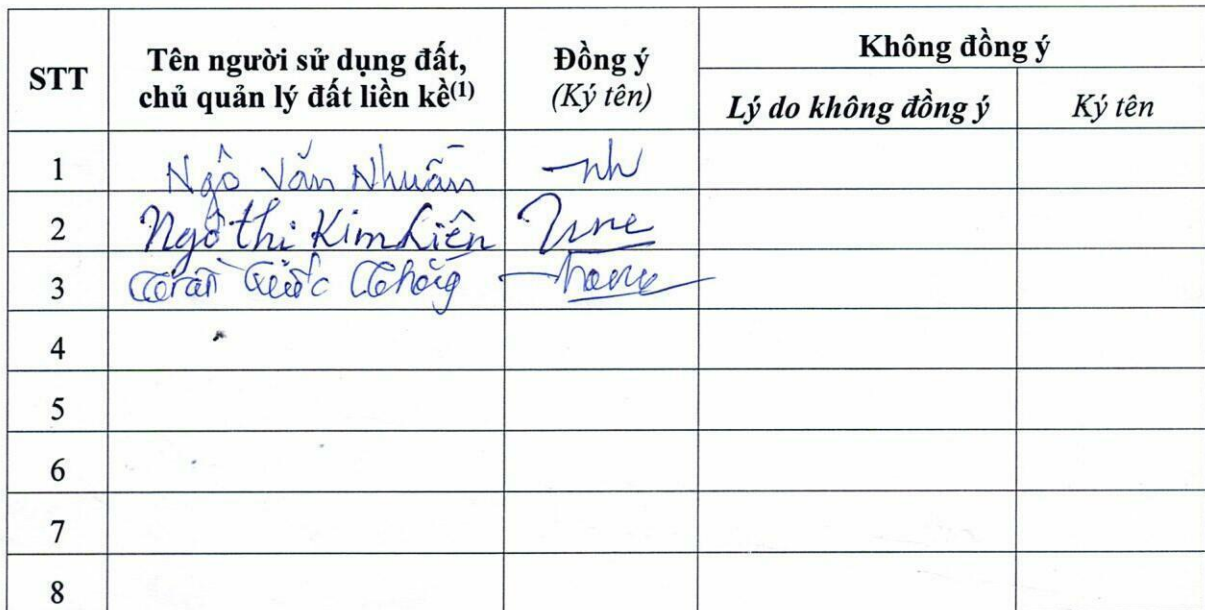 STT
Tên người sử dụng đất,
chủ quản lý đất liền kề(1)
Đồng ý
(Ký tên)
Không đồng ý
Lý do không đồng ý
Ký tên
1 Ngô Văn Nhuần nh
2 Ngô Thị Kim Liên
3 Trần Quốc
4
5
6
7
8